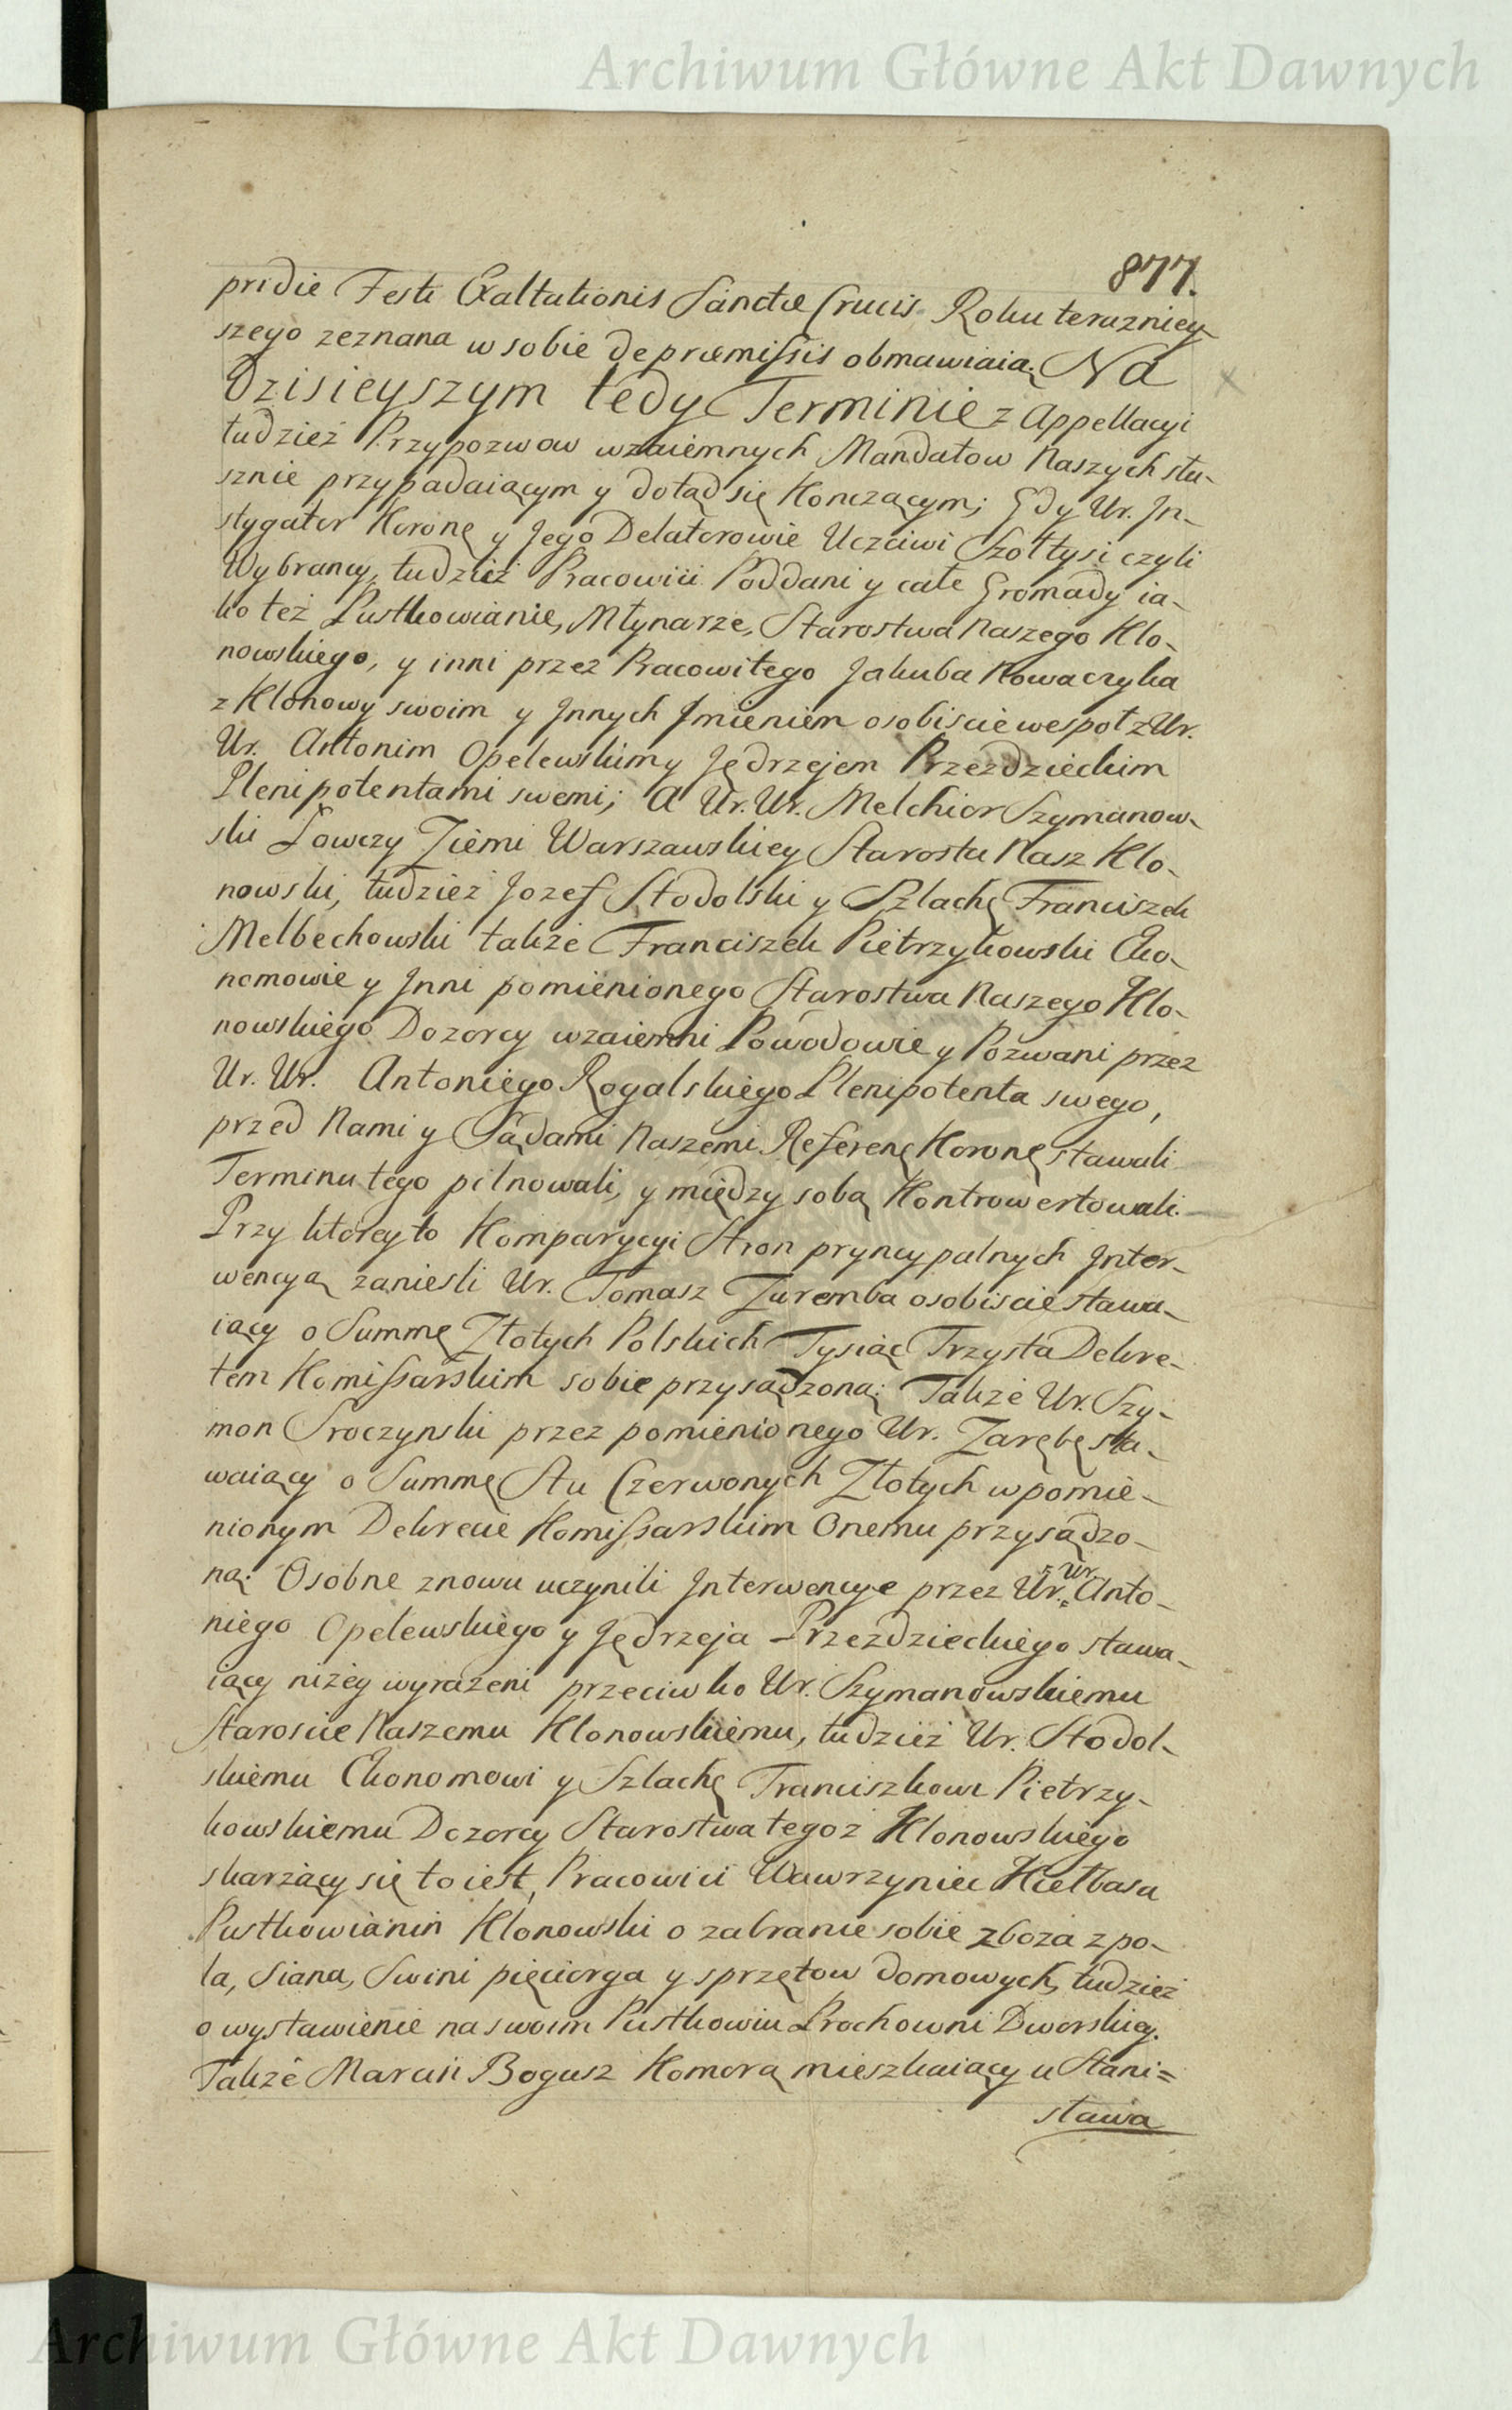 Archiwum Główne Akt Dawnych
877.
pridie Festi Exaltationis Sanctæ Crucis Roku terazniey-
szego zeznana w sobie de præmissis obmawiaią. Na
dzisieyszym tedy Terminie z Appellacyi
tudzież Przypozwow wzaiemnych Mandatow Naszych słu-
sznie przypadaiącym y dotąd się Konczącym; Gdy Ur. In-
stygator Koronę y Jego Delatorowie Uczciwi Szołtysi czyli
Wybrancy, tudzież Pracowici Poddani y całe Gromady ia-
ko też Pustkowianie, Młynarze, Starostwa Naszego Klo-
nowskiego, y inni przez Pracowitego Jakuba Nowaczyka
z Klonowy swoim y Innych Imieniem osobiscie wespoł z Ur.
Ur. Antonim Opelewskim y Jędrzejem Przezdzieckim
Plenipotentami swemi; A Ur. Ur. Melchior Szymanow-
ski Łowczy Ziemi Warszawskiey Starosta Nasz Klo-
nowski, tudzież Jozef Stodolski y Szlachę Franciszek
Melbechowski także Franciszek Pietrzykowski Eko-
nomowie y Inni pomienionego Starostwa Naszego Klo-
nowskiego Dozorcy wzaiemni Powodowie y Pozwani przez
Ur. Ur. Antoniego Rogalskiego Plenipotenta swego,
przed Nami y Sądami Naszemi Referenę Koronę stawali
Terminu tego pilnowali, y między sobą Kontrowertowali.
Przy ktorey to Komparycyi Stron pryncypalnych Inter-
wencyą zanieśli Ur. Tomasz Zaremba osobiscie stawa-
iący o Summę Złotych Polskich Tysiąc Trzysta Dekre-
tem Komissarskim sobie przysądzoną; Także Ur. Szy-
mon Sroczynski przez pomienionego Ur. Zarębę sta-
waiący o Summę Stu Czerwonych Złotych w pomie-
nionym Dekrecie Komissarskim Onemu przysądzo-
ną. Osobne znowu uczynili Interwencye przez Ur. Ur. Anto-
niego Opelewskiego y Jędrzeja Przezdzieckiego stawa-
iący niżey wyrażeni przeciwko Ur. Szymanowskiemu
Staroście Naszemu Klonowskiemu, tudzież Ur. Stodol-
skiemu Ekonomowi y Szlachę Franciszkowi Pietrzy-
kowskiemu Dozorcy Starostwa tegoż Klonowskiego
skarżący się to iest, Pracowici Wawrzyniec Kiełbasa
Pustkowianin Klonowski o zabranie sobie zboża z po-
la, Siana, Swini pięciorga y sprzętow domowych, tudzież
o wystawienie na swoim Pustkowiu Prochowni Dworskiey.
Także Marcin Bogusz Komorą mieszkaiący u Stani=
sława
Archiwum Główne Akt Dawnych